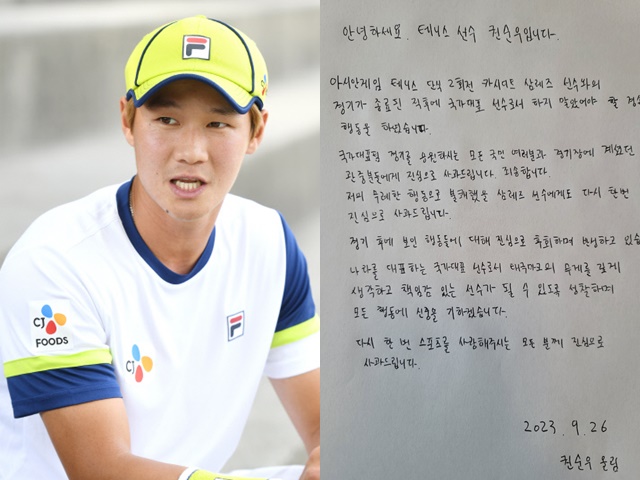 FILA
CJ
FOODS
CJ
FILA
안녕하세요. 테니스 선수 권순우입니다.
아시안게임 테니스 단식 2회전 카시디트 삼레즈 선수와의
경기가 종료된 직후에 국가대표 선수로서 하지 말았어야 할 경솔
행동을 하였습니다.
국가대표팀 경기를 응원하시는 모든 국민 여러분과 경기장에 계셨던
관중분들에게 진심으로 사과드립니다. 죄송합니다.
저의 무례한 행동으로 불쾌했을 삼레즈 선수에게도 다시 한번
진심으로 사과드립니다.
경기 후에 보인 행동들에 대해 진심으로 후회하며 반성하고 있습
나라를 대표하는 국가대표 선수로서 태극마크의 무게를 깊게
생각하고 책임감 있는 선수가 될 수 있도록 성찰하며
모든 행동에 신중을 기하겠습니다.
다시 한 번 스포츠를 사랑해주시는 모든 분께 진심으로
사과드립니다.
2023. 9. 26
권순우 올림